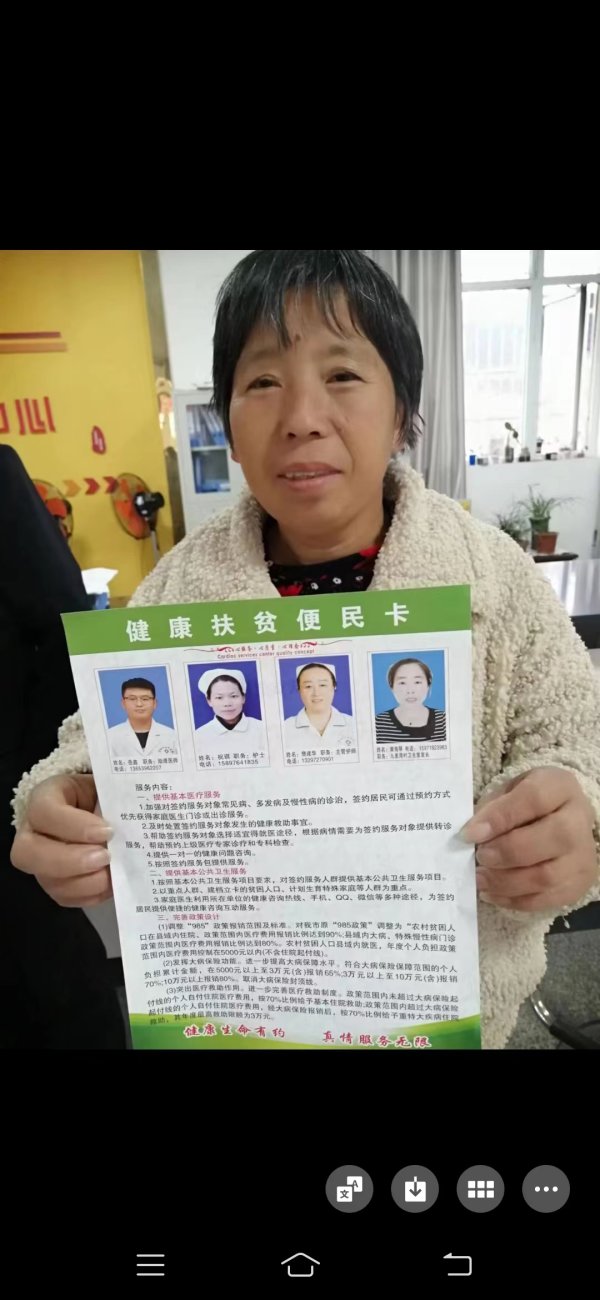 心
健康扶贫便民卡
Cardiac services center quality concept
职务：助理医师
电话：13653962207
职务：护士
电话：15897641835
职务：主管护师
电话：13297270901
电话：15971923983
服务内容：
一、提供基本医疗服务
1.加强对签约服务对象常见病、多发病及慢性病的诊治，签约居民可通过预约方式
优先获得家庭医生门诊或出诊服务。
2.及时处置签约服务对象发生的健康救助事宜。
3.帮助签约服务对象选择适宜得就医途径，根据病情需要为签约服务对象提供转诊
服务，帮助预约上级医疗专家诊疗和专科检查。
4.提供一对一的健康问题咨询。
5.按照签约服务包提供服务。
二、提供基本公共卫生服务
1.按照基本公共卫生服务项目要求，对签约服务人群提供基本公共卫生服务项目。
2.以重点人群、建档立卡的贫困人口、计划生育特殊家庭等人群为重点。
3.家庭医生利用所在单位的健康咨询热线，手机、QQ、微信等多种途径，为签约
居民提供便捷的健康咨询互动服务。
三、完善政策设计
(1)调整“985”政策报销范围及标准。对我市原“985政策”调整为“农村贫困人
口在县域内住院、政策范围内医疗费用报销比例达到90%;县域内大病、特殊慢性病门诊
政策范围内医疗费用报销比例达到80%。农村贫困人口县域内就医，年度个人负担政策
范围内医疗费用控制在5000元以内(不含住院起付线)。
(2)发挥大病保险功能。进一步提高大病保障水平。符合大病保险保障范围的个人
负担累计金额，在5000元以上至3万元(含)报销65%;3万元以上至10万元(含)报销
70%;10万元以上报销80%。取消大病保险封顶线。
(3)突出医疗救助作用。进一步完善医疗救助制度。政策范围内未超过大病保险起
付线的个人自付住院医疗费用，按70%比例给予基本住院救助;政策范围内超过大病保险
起付线的个人自付住院医疗费用，经大病保险报销后，按70%比例给予重特大疾病住院
救助，其年度最高救助限额为3万元。
健康生命有约 真情服务无限